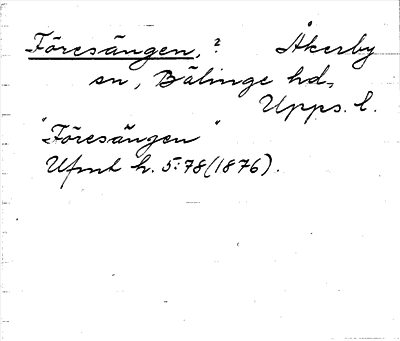 Föresängen, ? Åkerby
sn, Bälinge hd,
Upps. l.
"Föresängen"
Ufmt h. 5:78 (1876).